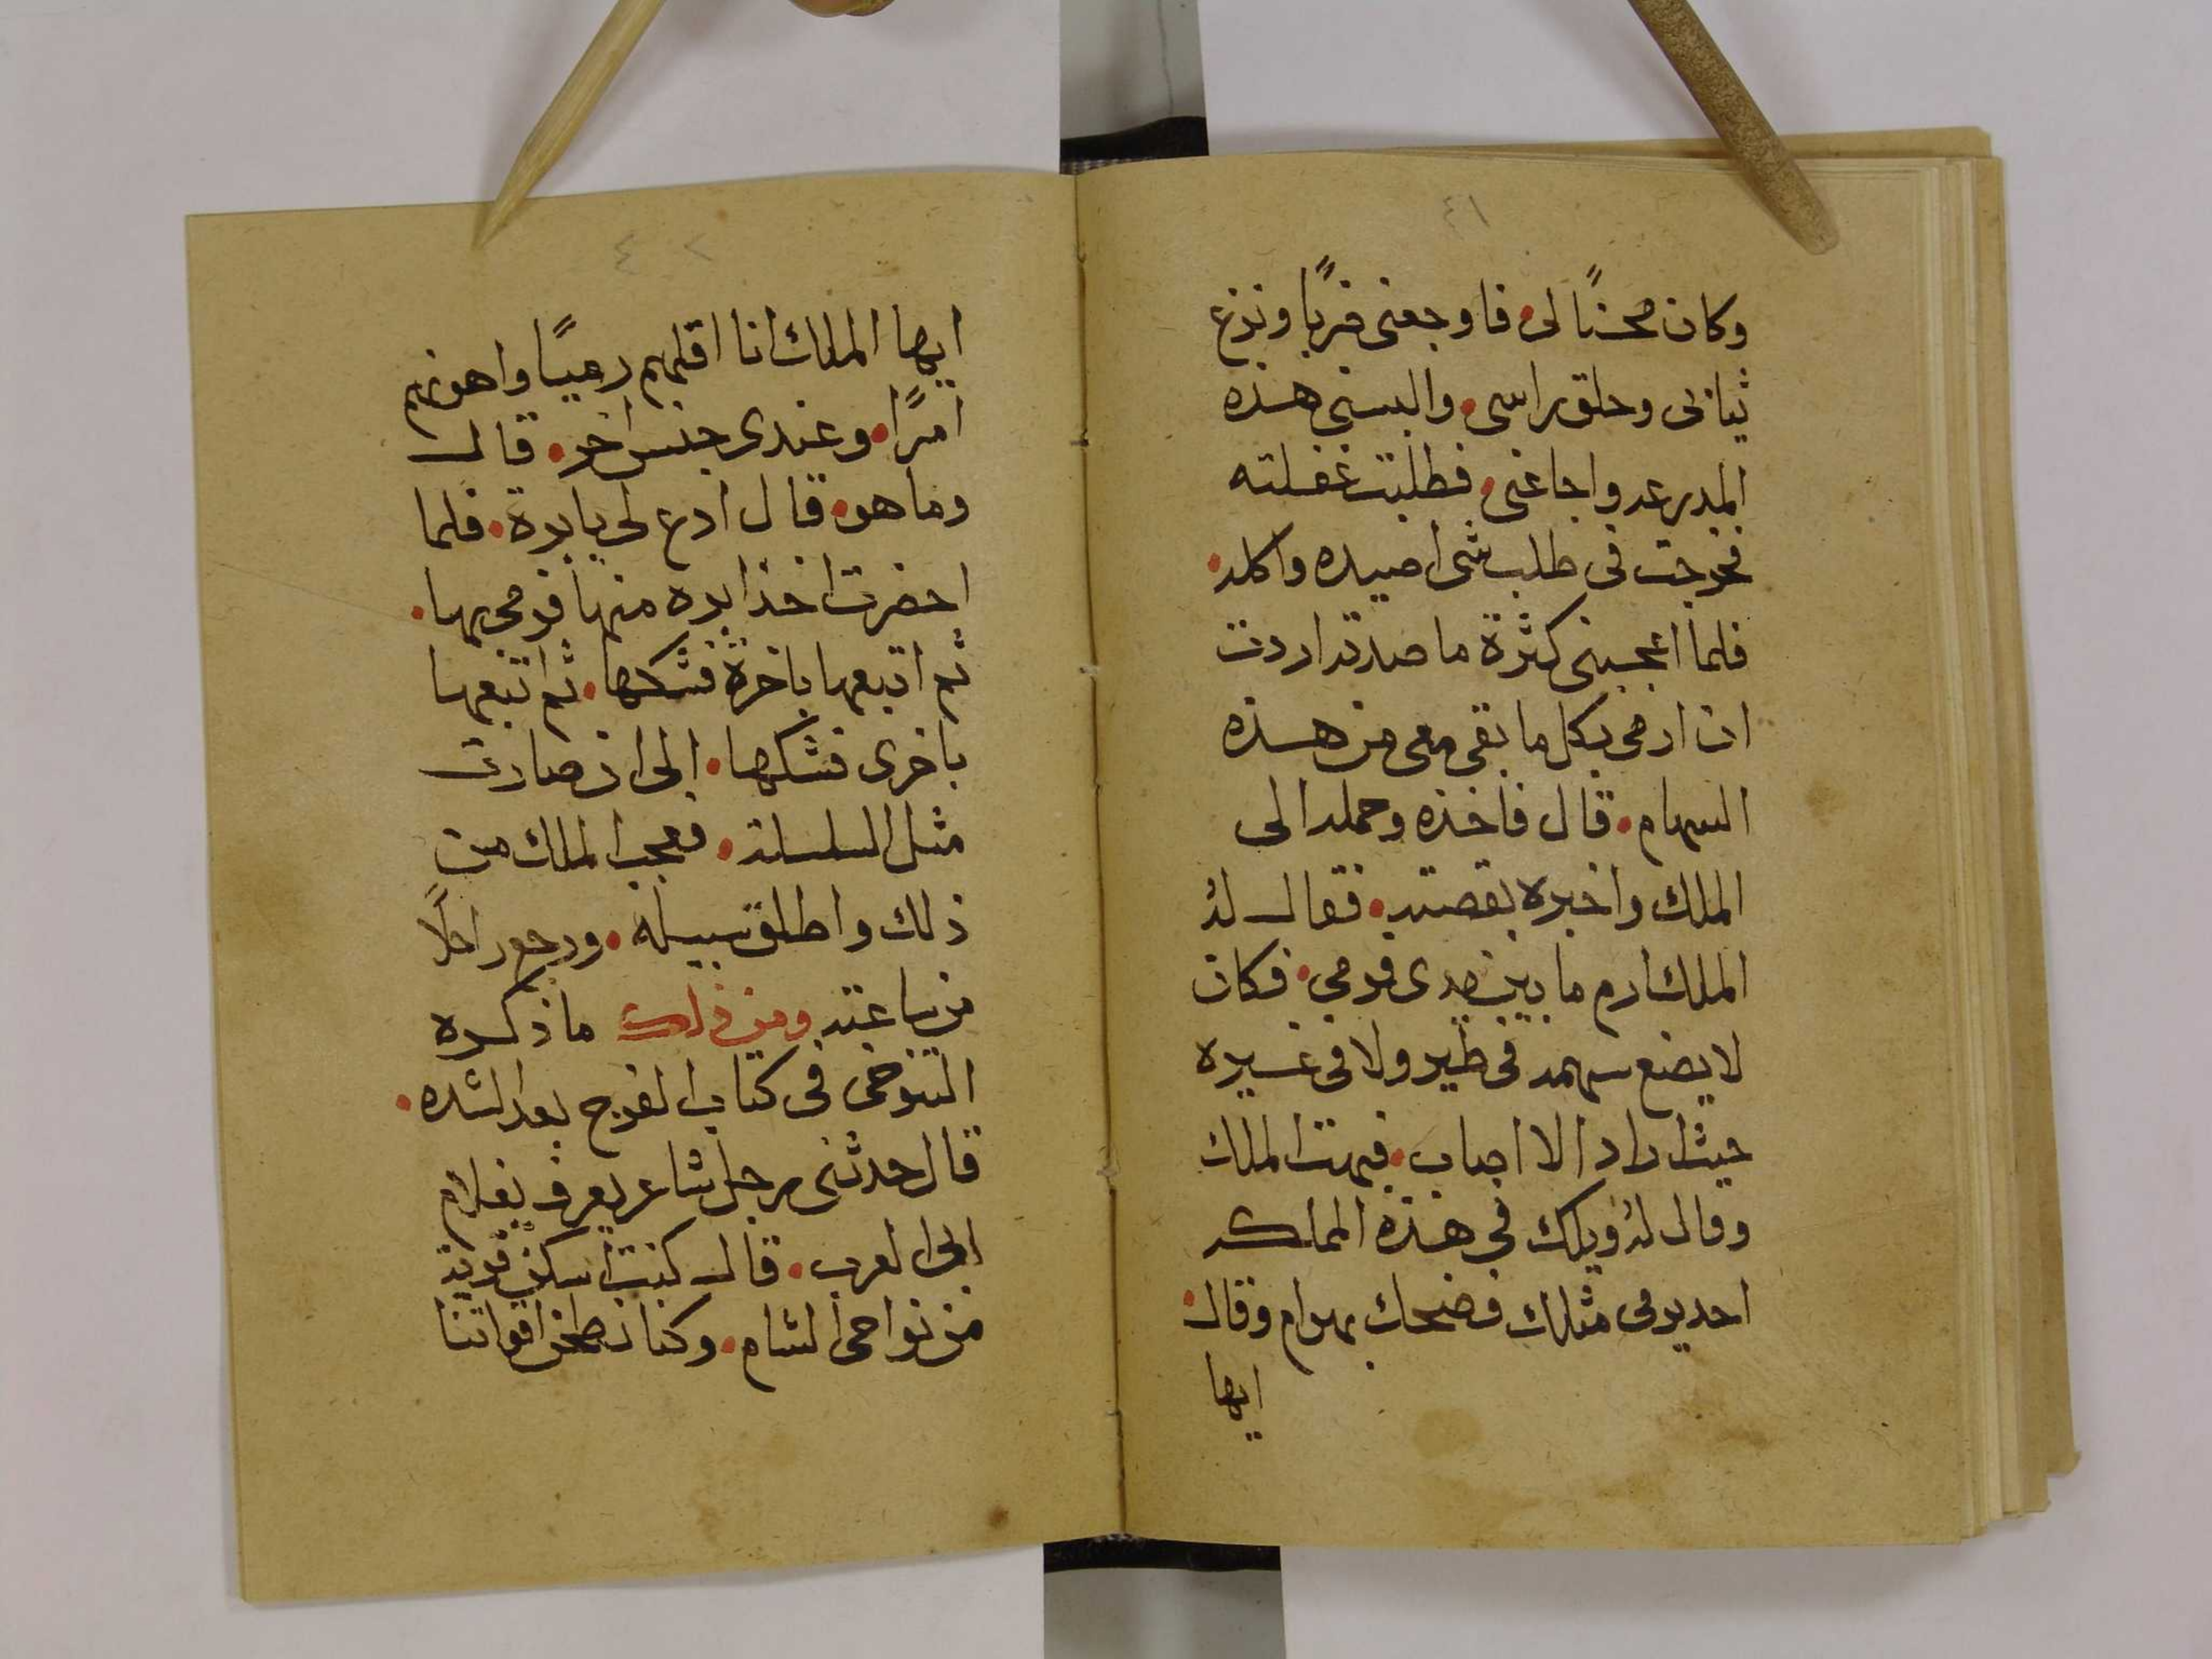 ٤١
وكان محسنًا لى • فاوجعنى ضربًا ونزع
ثيابى وحلق راسى • والبسنى هذه
المدرعه واجاعنى • فطلبت غفلته
فخرجت فى طلب شى اصيده واكله •
فلما اعجبنى كثرة ما صدته اردت
ان ارمى بكل ما بقى معى من هذه
السهام • قال فاخذه وحمله الى
الملك واخبره بقصته • فقال له
الملك ارم ما بين يدى فرمى • فكان
لا يضع سهمه فى طير ولا فى غيره
حيث اراد الا اصاب • فبهت الملك
وقال له ويلك فى هذه المملكه
احد يرمى مثلك فضحك بهرام وقال •
ايها
٤٢
ايها الملك انا اقلهم رميًا واهونهم
امرًا • وعندى جنس اخر • قال
وما هو • قال ادع لى بابرة • فلما
احضرت اخذ ابره منها فرمى بها •
ثم اتبعها باخرة فشكها • ثم اتبعها
باخرى فشكها • الى ان صارت
مثل السلسلة • فعجب الملك من
ذلك واطلق سبيله • ورجع راحلًا
من ساعته ومن ذلك ما ذكره
التنوخى فى كتاب الفرج بعد الشده •
قال حدثنى رجل شاعر يعرف بغلام
ابى الغرب • قال كنت اسكن قرية
من نواحى الشام • وكنا نطحن اقواتنا